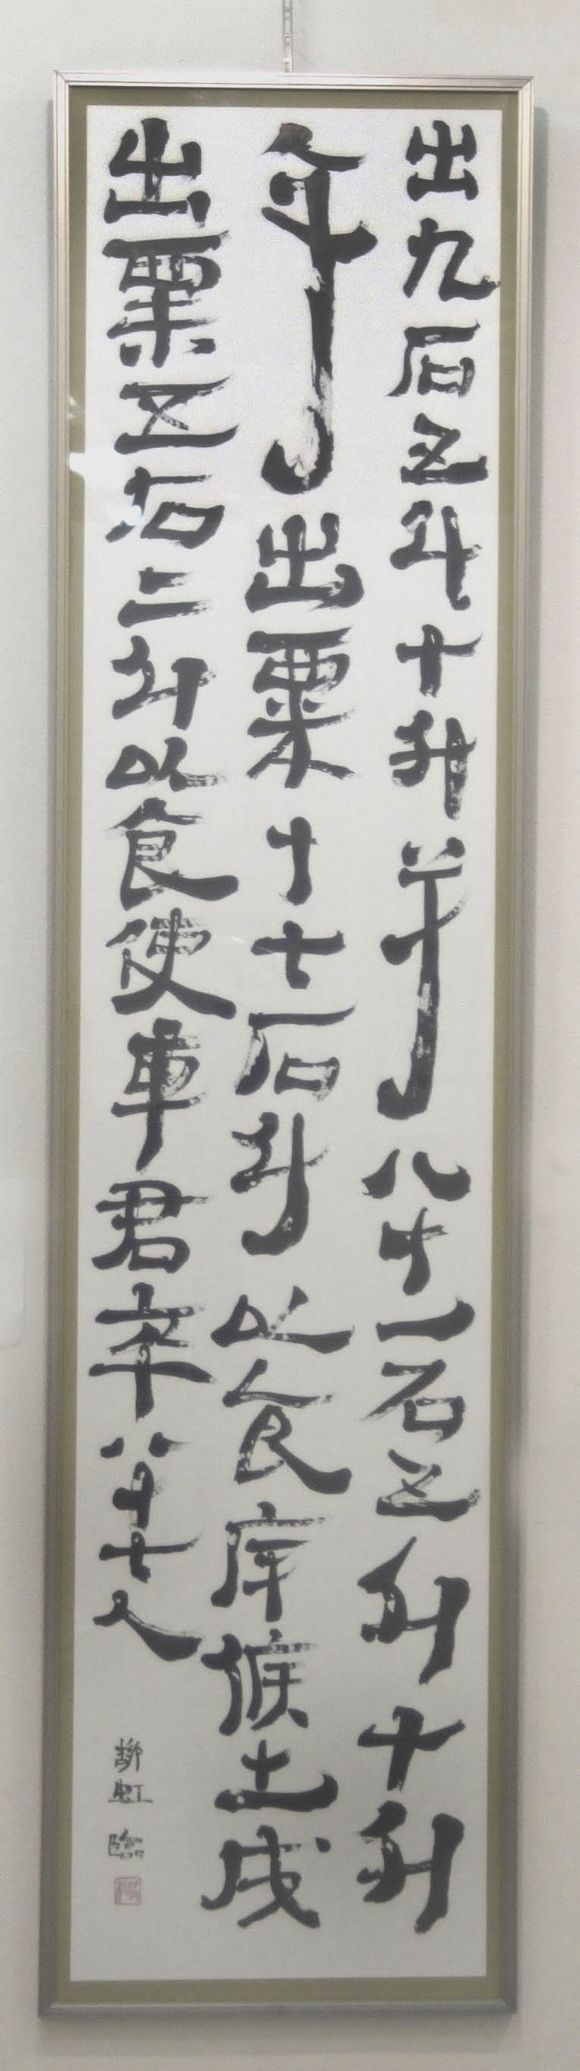 出九石五斗十升年八十一石五升十升
年出粟十七石斗以食府候土戍
出粟五石二斗以食使車君卒八十七人
柳虹臨